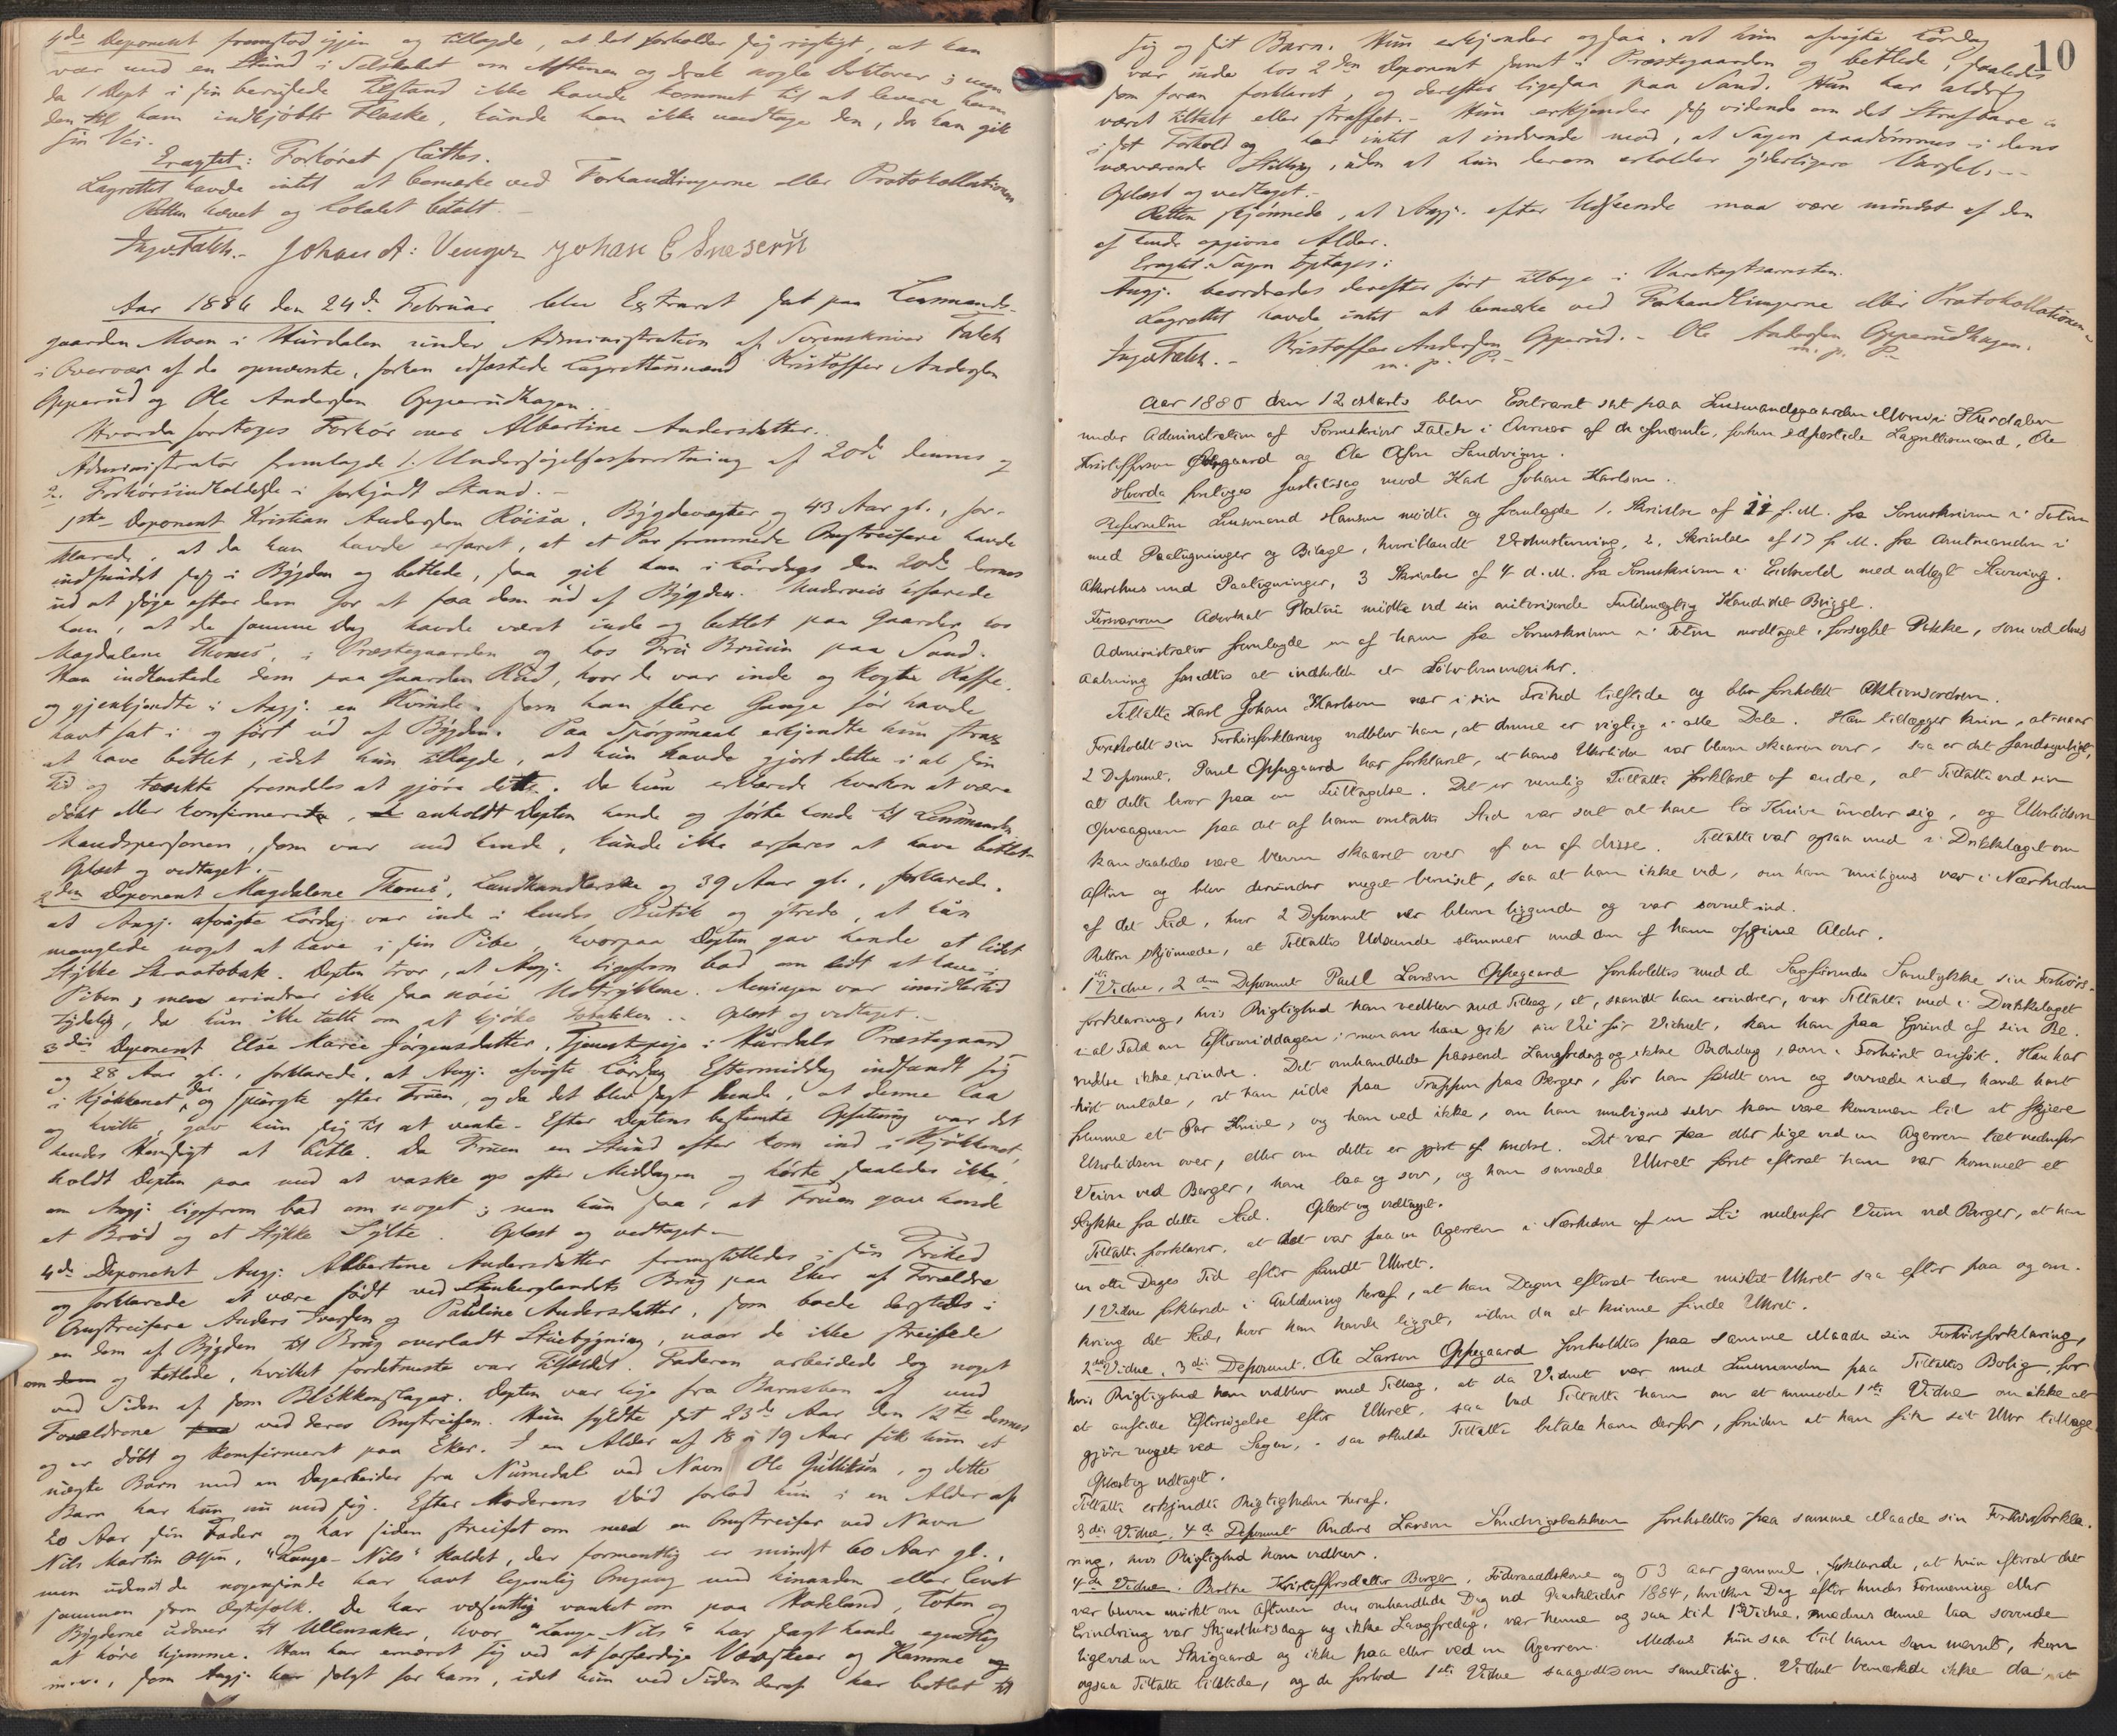 4de Deponent fremstod igjen og tillagde, at det forholder sig rigtigt, at han
var med en Stund i Selskabet om Aftenen og drak nogle Boktorer; men
da 1 Dept i sin berusede Tilstand ikke havde kommet til at levere ham
den til ham indkjøbte Flaske, kunde han ikke modtage den, da han gik
sin Vei.
Eragtet: Forhøret sluttes.
Lagrettet havde intet at bemærke ved Forhandlingerne eller Protokollationen
Retten hævet og Lokalet betalt.
Inge Falch. - Johan A: Venger Johan E
Aar 1886 den 24de Februar blev Extraret sat paa Lensmands-
gaarden Moen i Hurdalen under Administration af Sorenskriver Falch
i Overvær af de opnævnte, forhen edfæstede Lagrettesmænd Kristoffer Andersen
Opperud og Ole Andersen Opperudhagen.
Hvorda foretoges Forhør over Albertine Andersdatter.
Administrator fremlagde 1. Undersøgelsesforretning af 20de dennes og
2. Forhørsindkaldelse i forkyndt Stand. -
1ste Deponent Kristian Andersen Röisa, Bygdevægter og 43 Aar gl., for-
klarede, at da han havde erfaret, at et Par fremmede Omstreifere havde
indfundet sig i Bygden og betlede, saa gik han i Lørdags den 20de dennes
ud at søge efter dem for at faa dem ud af Bygden. Underveis erfarede
han, at de samme Dag havde været inde og betlet paa Gaarder hos
Magdalene Thones, i Præstegaarden og hos Fru Bruun paa Sand.
Han indhentede dem paa Gaarden Rud, hvor de var inde og kogte Kaffe,
og gjenkjendte i Angj. en Kvinde, som han flere Gange før havde
havt fat i og ført ud af Bygden. Paa Spørgsmaal erkjendte hun strax
at have betlet, idet hun tillagde, at hun havde gjort dette i al sin
Tid og tænkte fremdeles at gjøre dette. Da hun erklærede hverken at være
døbt eller konfirmeret, anholdt Depten hende og førte hende til Lensmanden.
Mandspersonen, som var med hende, kunde ikke erfares at have betlet.
Oplæst og vedtaget. -
2den Deponent Magdalene Thones, Landhandlerske og 39 Aar gl., forklarede,
at Angj. afvigte Lørdag var inde i hendes Butik og ytrede, at hun
manglede noget at have i sin Pibe, hvorpaa Depten gav hende et lidet
Stykke Skraatobak. Depten tror, at Angj. ligefrem bad om lidt at have i
Piben, men erindrer ikke saa nøie Udtrykkene. Meningen var imidlertid
tydelig, da hun ikke talte om at kjøbe Tobakken. - Oplæst og vedtaget. -
3die Deponent Else Marie Jørgensdatter, Tjenestepige i Hurdals Præstegaard
og 28 Aar gl., forklarede, at Angj. afvigte Lørdag Eftermiddag indfandt sig
i Kjøkkenet der og spurgte efter Fruen, og da det blev sagt hende, at denne laa
og hvilte, gav hun sig til at vente. - Efter Deptens bestemte Opfatning var det
hendes Hensigt at betle. Da Fruen en Stund efter kom ind i Kjøkkenet,
holdt Depten paa med at vaske op efter Middagen og hørte saaledes ikke,
om Angj. ligefrem bad om noget; men hun saa, at Fruen gav hende
et Brød og et Stykke Sylte. Oplæst og vedtaget. -
4de Deponent Angj. Albertine Andersdatter fremstilledes i sin Frihed
og forklarede at være født ved Stenberglandets Brug paa Eker af Forældre
Omstreifere Anders Iversen og Pauline Andersdatter, som boede dersteds i
en dem af Bygden til Brug overladt Stuebygning, naar de ikke streifede
om og betlede, hvilket fordetmeste var Tilfældet. Faderen arbeidede dog noget
ved Siden af som Blikkenslager. Depten var lige fra Barnsben af med
Forældrene ved deres Omstreifen. Hun fyldte sit 23de Aar den 12te dennes
og er døbt og konfirmeret paa Eker. I en Alder af 18 à 19 Aar fik hun et
uægte Barn med en Dagarbeider fra Numedal ved Navn Ole Gulliksen, og dette
Barn har hun nu med sig. Efter Moderens Død forlod hun i en Alder af
20 Aar sin Fader og har siden streifet om med en Omstreifer ved Navn
Nils Martin Olsen, "Lange-Nils" kaldet, der formentlig er mindst 60 Aar gl.,
men uden at de nogensinde har havt legemlig Omgang med hinanden eller levet
sammen som Ægtefolk. De har væsentlig vanket om paa Hadeland, Toten og
Bygderne udover til Ullensaker, hvor "Lange-Nils" har sagt hende egentlig
at høre hjemme. Han har ernæret sig ved at forfærdige Vævskeer og Kamme
m. v., som Angj. har solgt for ham, idet hun ved Siden deraf har betlet til
10
sig og sit Barn. Hun erkjender ogsaa, at hun afvigte Lørdag
var inde hos 2den Deponent samt i Præstegaarden og betlede, saaledes
som foran forklaret, og derefter ligesaa paa Sand. Hun har aldrig
været tiltalt eller straffet. - Hun erkjender sig vidende om det Strafbare
i sit Forhold og har intet at indvende mod, at Sagen paadømmes i dens
nærværende Stilling, uden at hun derom erholder yderligere Varsel. -
Oplæst og vedtaget. -
Retten skjønnede, at Angj. efter Udseende maa være mindst af den
af hende opgivne Alder.
Eragtet: Sagen optages:
Angj. beordredes derefter ført tilbage i Varetægtsarresten.
Lagrettet havde intet at bemærke ved Forhandlingerne eller Protokollationen
Inge Falch. - Kristoffer Andersen Opperud. - Ole Andersen Opperudhagen.
m. p. P. - m. p. P. -
Aar 1886 den 12 Marts blev Extraret sat paa Lensmandsgaarden Moen i Hurdalen
under Administration af Sorenskriver Falch i Overvær af de opnævnte, forhen edfæstede Lagrettesmænd, Ole
Kristoffersen Ødegaard og Ole Olsen Sandvigen.
Hvorda foretoges Justitssag mod Karl Johan Karlsen.
Referenten Lensmand Hansen mødte og fremlagde 1. Skrivelse af 11 f. M. fra Sorenskriveren i Toten
med Paategninger og Bilage, hvoriblandt Forhørsudskrivning, 2. Skrivelse af 17 f. M. fra Amtmanden i
Akershus med Paategninger, 3 Skrivelse af 4 d. M. fra Sorenskriveren i Eidsvold med udtaget Stevning.
Forsvareren Advokat Platou mødte ved sin autoriserede Fuldmægtig Kandidat Bugge.
Administrator fremlagde en af ham fra Sorenskriveren i Toten modtaget, forseglet Pakke, som ved dens
Aabning fandtes at indeholde et Sølvlommeuhr.
Tiltalte Karl Johan Karlsen var i sin Frihed tilstede og blev foreholdt Aktionsordren.
Foreholdt sin Forhørsforklaring vedblev han, at denne er rigtig i alle Dele. Han tilægger kun, at naar
2 Deponent, Paul Oppegaard har forklaret, at hans Uhrlidse var bleven skaaren over, saa er det sandsynligt,
at dette beror paa en Feiltagelse. Det er nemlig Tiltalte forklaret af andre, at Tiltalte ved sin
Opvaagnen paa det af ham omtalte Sted var set at have to Knive under sig, og Uhrlidsen
kan saaledes være bleven skaaret over af en af disse. Tiltalte var ogsaa med i Drikkelaget om
Aften og blev derunder meget beruset, saa at han ikke ved, om han muligens var i Nærheden
af det Sted, hvor 2 Deponent var bleven liggende og var sovnet ind.
Retten skjønnede, at Tiltaltes Udseende stemmer med den af ham opgivne Alder.
1ste Vidne, 2den Deponent Paul Larsen Oppegaard foreholdtes med de Sagførendes Samtykke sin Forhørs-
forklaring, hvis Rigtighed han vedblev med Tillæg, at, saavidt han erindrer, var Tiltalte med i Drikkelaget
i al Fald om Eftermiddagen; men om han gik sin Vei før Vidnet, kan han paa Grund af sin Be-
ruselse ikke erindre. Det omhandlede passered Langfredag og ikke Bededag, som i Forhøret anført. Han har
hørt omtale, at han sidst paa Trappen paa Berger, før han faldt om og sovnede ind, havde havt
fremme et Par Knive, og han ved ikke, om han muligens selv kan være kommen til at skjære
Uhrlidsen over, eller om dette er gjort af andre. Det var paa eller lige ved en Agerren tæt nedenfor
Veien ved Berger, han laa og sov, og han savnede Uhret først efterat han var kommet et
Stykke fra dette Sted. Oplæst og vedtaget.
Tiltalte forklarer, at det var paa en Agerren i Nærheden af en Sti nedenfor Veien ved Berger, at han
en otte Dages Tid efter fandt Uhret.
1 Vidne forklarede i Anledning heraf, at han Dagen efterat have mistet Uhret saa efter paa og om-
kring det Sted, hvor han havde ligget, uden da at kunne finde Uhret.
2det Vidne, 3die Deponent, Ole Larsen Oppegaard foreholdtes paa samme Maade sin Forhørsforklaring,
hvis Rigtighed han vedblev med Tillæg, at da Vidnet var med Lensmanden paa Tiltaltes Bolig for
at anstille Eftersøgelse efter Uhret, saa bad Tiltalte ham om at anmode 1ste Vidne om ikke at
gjøre noget ved Sagen, saa skulde Tiltalte betale ham derfor, foruden at han fik sit Uhr tilbage
Oplæst og vedtaget.
Tiltalte erkjendte Rigtigheden heraf.
3die Vidne, 4de Deponent Anders Larsen Sandvigsbakken foreholdtes paa samme Maade sin Forhørsforkla-
ring, hvis Rigtighed han vedblev.
4de Vidne, Berthe Kristoffersdatter Berger, Føderaadskone og 63 Aar gammel, forklarede, at hun efterat det
var bleven mørkt om Aftenen den omhandlede Dag ved Paasketider 1884, hvilken Dag efter hendes Formening eller
Erindring var Skjærthorsdag og ikke Langfredag, var henne og saa til 1ste Vidne, medens denne laa sovende
lige ved en Skigaard og ikke paa eller ved en Agerren. Medens hun saa til ham som nævnt, kom
ogsaa Tiltalte tilstede, og de forlod 1ste Vidne saagodtsom samtidig. Vidnet bemærkede ikke da, at